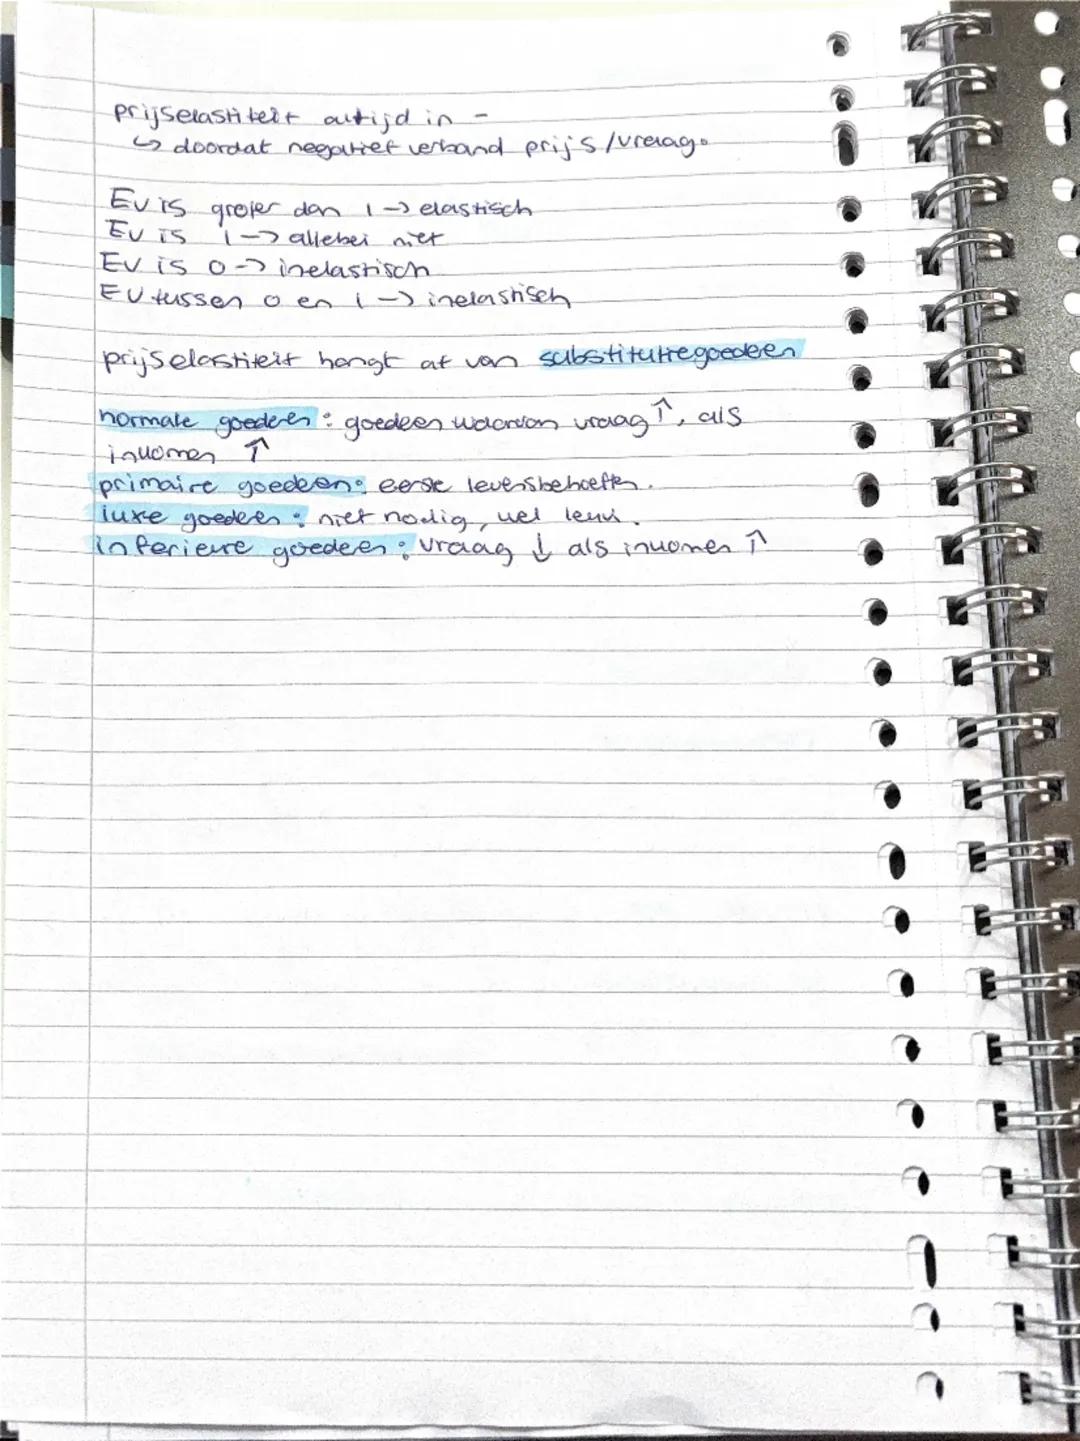 prijselastiteit altijd in -
↳ doordat negatief verband prijs/vraag.
Ev is groter dan 1 -> elastisch
Ev is 1 -> allebei niet
Ev is 0 -> inelastisch
Ev tussen 0 en 1 -> inelastisch
prijselastiteit hangt af van substitutiegoederen
normale goederen: goederen waarvan vraag ↑, als
inkomen ↑
primaire goederen: eerste levensbehoeften.
luxe goederen: niet nodig, wel leuk.
inferieure goederen: vraag ↓ als inkomen ↑